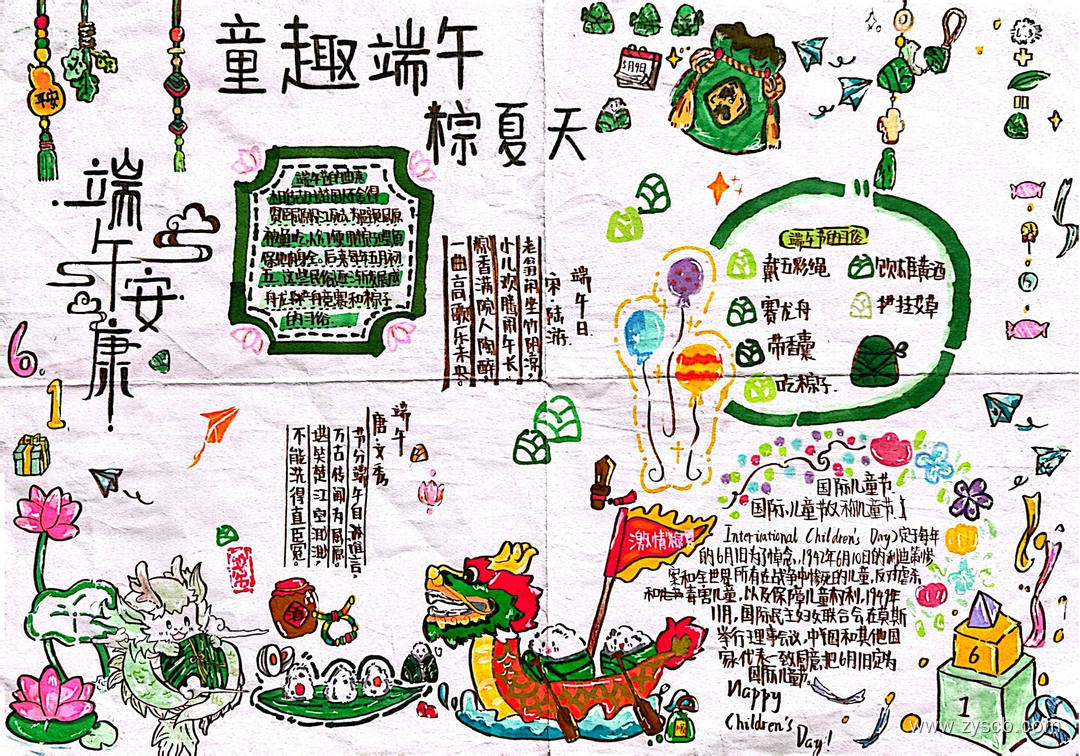 童趣端午
粽夏天
平安
5月9日
端午安康
6.1
端午节的由来
端午日
宋·陆游
老翁闲坐竹阴凉,
小儿欢腾闹午长,
粽香满院人陶醉,
一曲高歌乐未央。
端午节的习俗
戴五彩绳
饮雄黄酒
赛龙舟
护挂艾草
带香囊
吃粽子.
端午
唐·文秀
节分端午自谁言,
万古传闻为屈原,
堪笑楚江空渺渺,
不能洗得直臣冤。
酒
国际儿童节.
国际儿童节(又称儿童节,
International Children's Day)定于每年
的6月1日.为了悼念,1942年6月10日的利迪策惨
案和全世界所有在战争中惨死的儿童,反对虐杀
和毒害儿童,以及保障儿童权利,1949年
11月,国际民主妇女联合会在莫斯
举行理事会议,中国和其他国
家代表一致同意把6月1日定为
国际儿童节.
Happy
Children's
Day!
6
1
www.zyscb.com